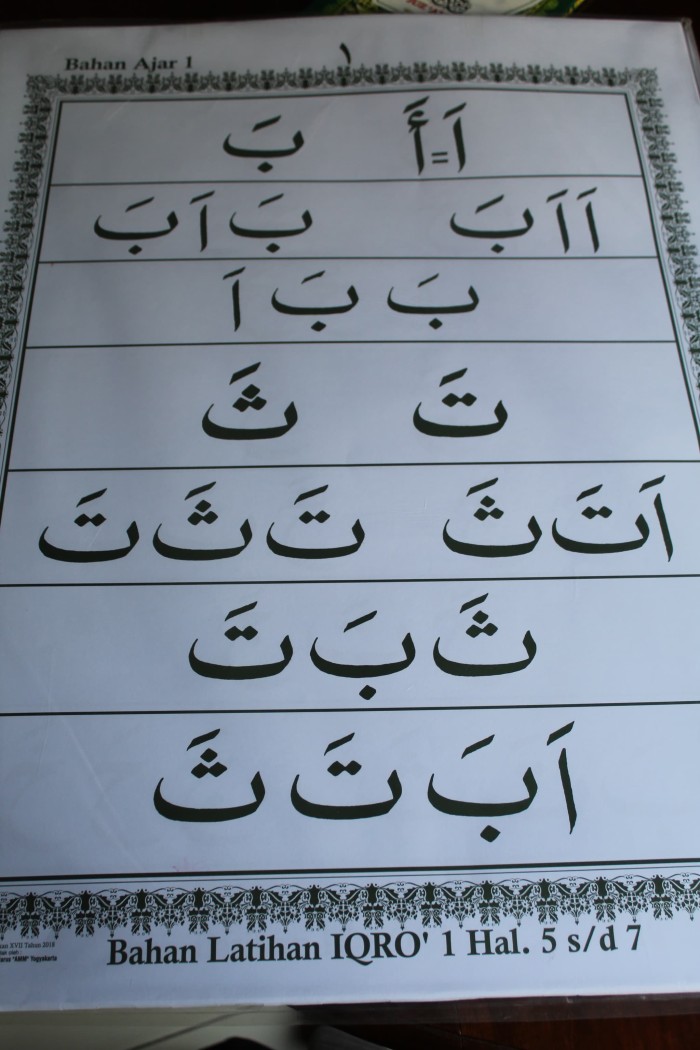 Bahan Ajar 1
١
اَ = أَ بَ
اَ اَ بَ بَ اَ بَ
بَ بَ اَ
تَ ثَ
اَ تَ ثَ تَ ثَ تَ
ثَ بَ تَ
اَ بَ تَ ثَ
Bahan Latihan IQRO' 1 Hal. 5 s/d 7
XVII Tahun 2018
"AMM" Yogyakarta